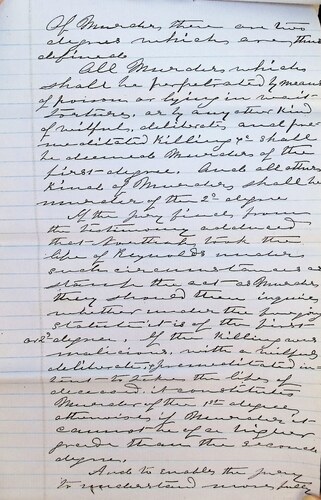 Of Murder, there are two
degrees which are thus
defined
All Murder, which
shall be perpetrated by means
of poison or lying in wait
torture, or by any other kind
of wilful, deliberate and pre
meditated killing &c shall
be deemed Murder of the
first-degree. And all other
kinds of Murder shall be
murder of the 2d degree
If the jury finds from
the testimony adduced
that took the
life of Reynolds under
such circumstances as
stamp the act as Murder
they should then inquire
whether under the
statute it is of the first-
or 2d degree. If the killing was
malicious, with a wilful
deliberate, premeditated in-
tent to the life of
deceased it constitutes
Murder of the 1st degree,
otherwise if Murder it
cannot be of a higher
grade than the second
degree.
And to enable the jury
to understand more fully